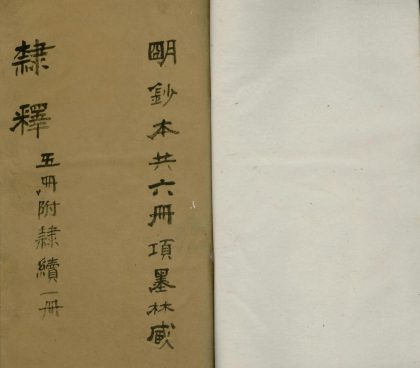 明鈔本共六冊項墨林藏
隸釋 五冊附隸續一冊